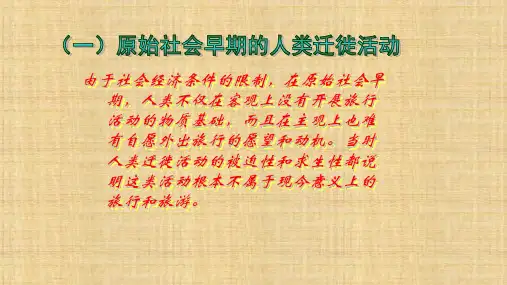 （一）原始社会早期的人类迁徙活动
由于社会经济条件的限制，在原始社会早
期，人类不仅在客观上没有开展旅行
活动的物质基础，而且在主观上也难
有自愿外出旅行的愿望和动机。当时
人类迁徙活动的被迫性和求生性都说
明这类活动根本不属于现今意义上的
旅行和旅游。